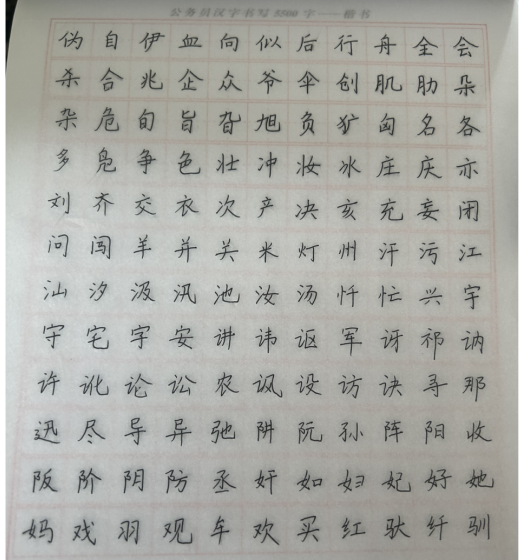 公务员汉字书写5500字——楷书
伪自伊血向似后行舟全会
杀合兆企众爷伞创肌肋朵
杂危旬旨旮旭负犷匈名各
多凫争色壮冲妆冰庄庆亦
刘齐交衣次产决亥充妄闭
问闯羊并关米灯州汗污江
汕汐汲汛池汝汤忏忙兴宇
守宅字安讲讳讴军讶祁讷
许讹论讼农讽设访诀寻那
迅尽导异弛阱阮孙阵阳收
阪阶阴防丞奸如妇妃好她
妈戏羽观牟欢买红驮纤驯